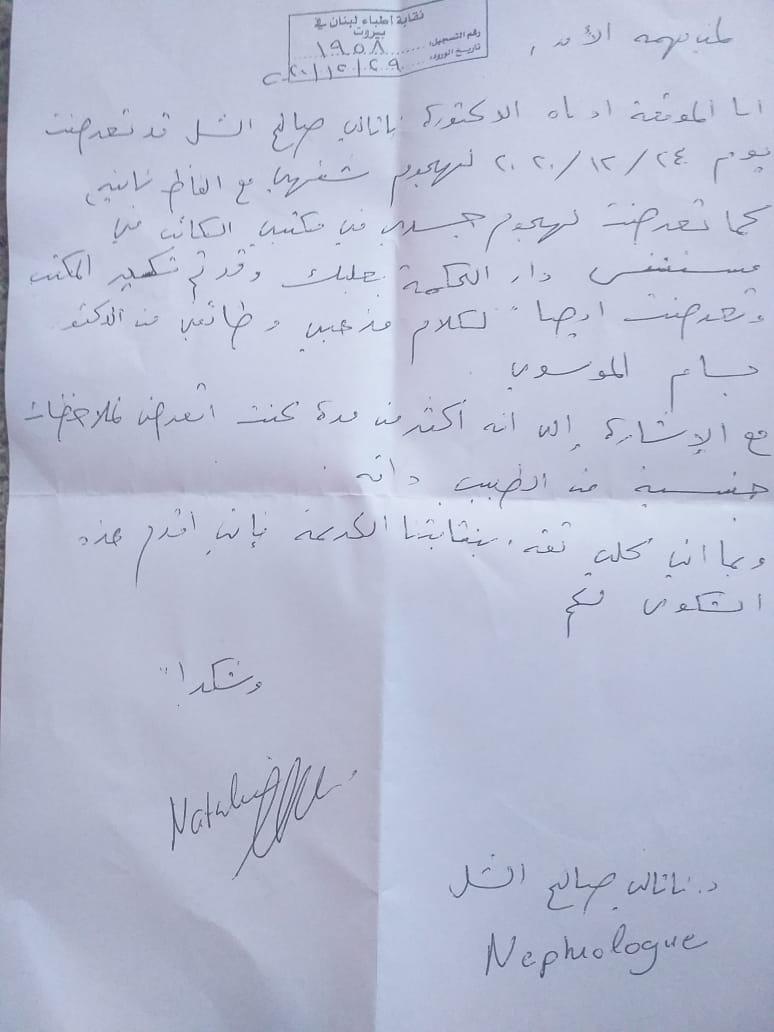 نقابة أطباء لبنان في
بيروت
رقم التسجيل: ١٩٥٨
تاريخ الورود: ٢٠٢٠/١٢/٢٩
لمن يهمه الأمر،
انا الموقعة ادناه الدكتورة ناتالي صالح الشل قد تعرضت
يوم ٢٤/١٢/٢٠٢٠ لهجوم شفهي مع الفاظ نابية
كما تعرضت لهجوم جسدي في مكتبي الكائن في
مستشفى دار الحكمة بعلبك وقد تم تكسير المكتب
وتعرضت ايضاً لكلام مذهبي وطائفي من الدكتور
بسام الموسوي
مع الإشارة إلى انه أكثر من مدة كنت اتعرض لملاحظات
جنسية من الطبيب ذاته.
وبما اني كلي ثقة بنقابتنا الكريمة فإني اقدم هذه
الشكوى لكم
وشكراً
Natalie
د. ناتالي صالح الشل
Nephrologue